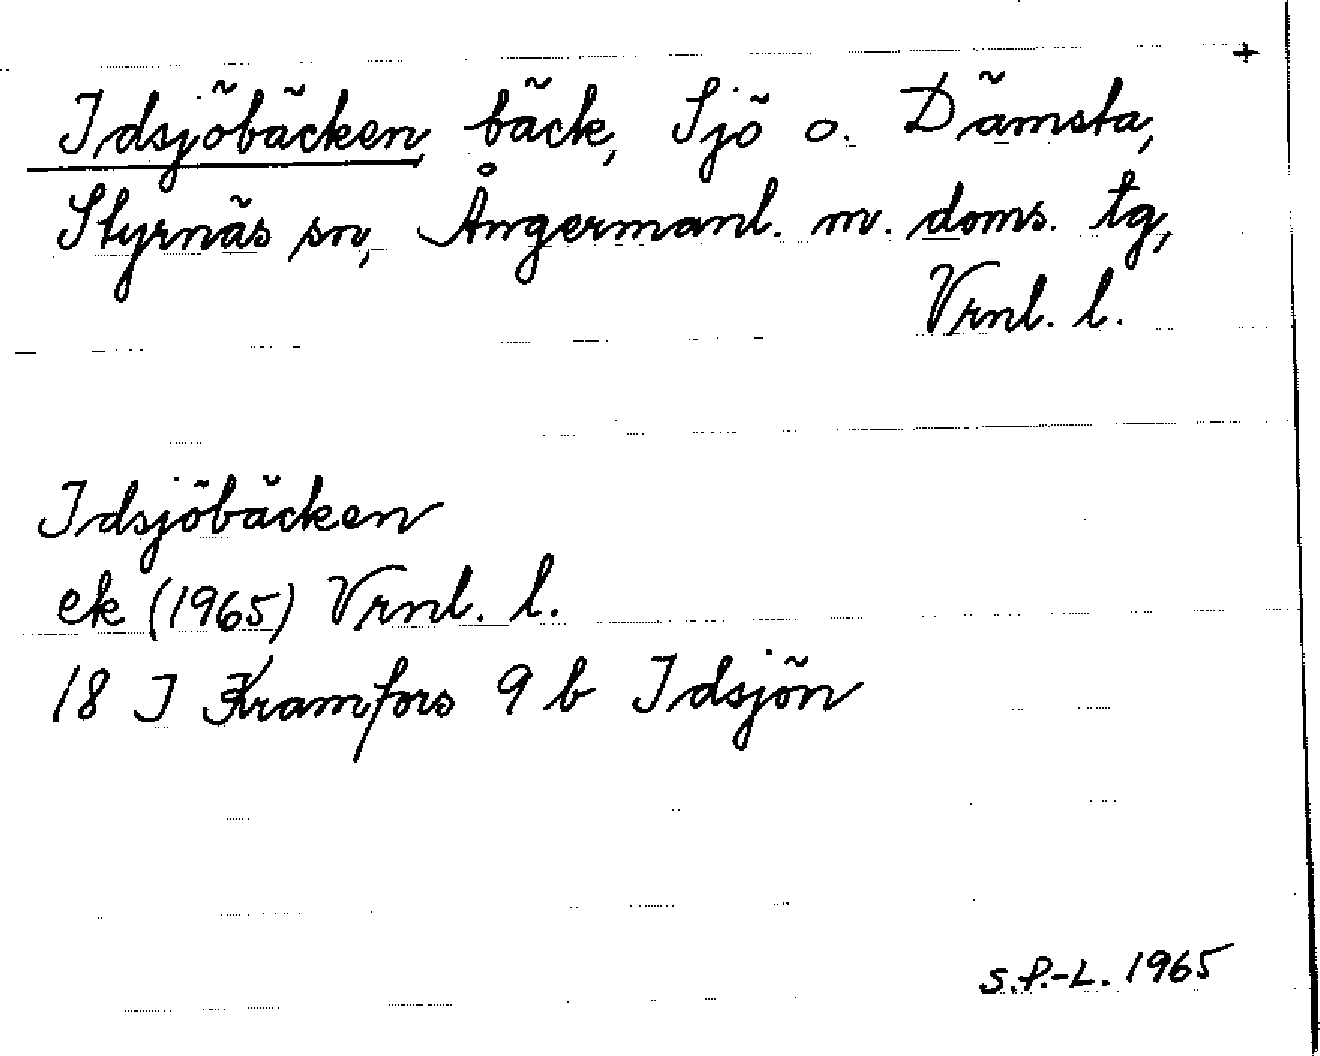 +
Idsjöbäcken, bäck, Sjö o. Dämsta,
Styrnäs sn, Ångermanl. m. doms. tg,
Vrnl. l.
Idsjöbäcken
ek (1965) Vrnl. l.
18 I Kramfors 9 b Idsjön
S.P.-L. 1965